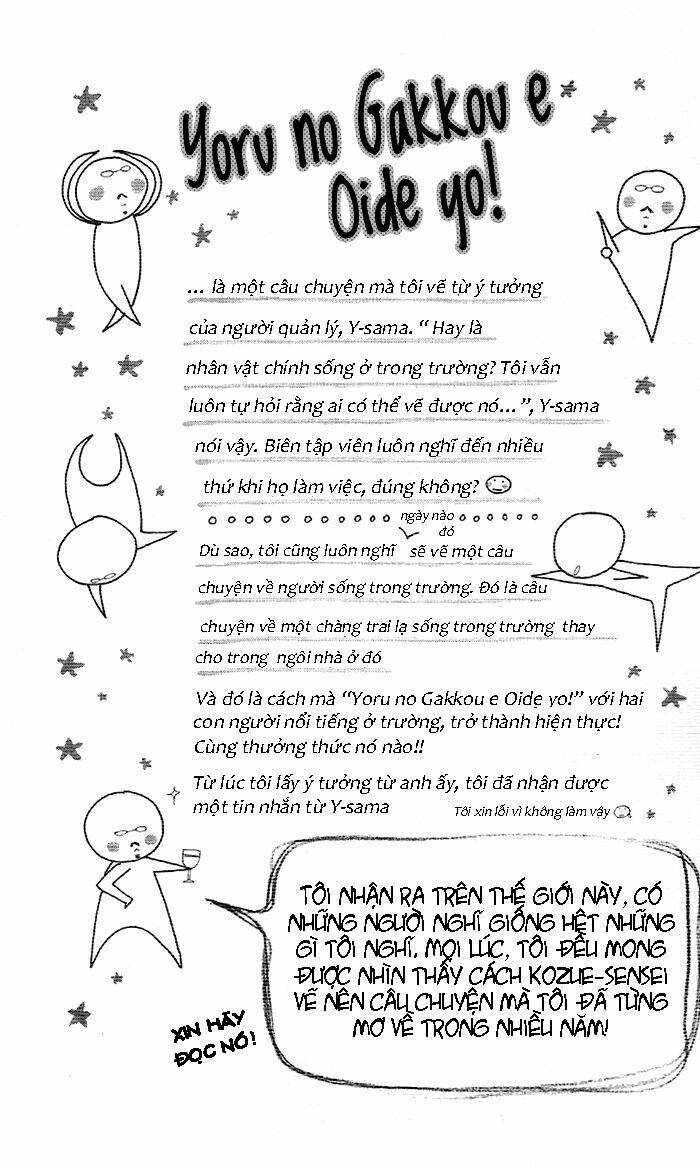 Yoru no Gakkou e
Oide yo!
... là một câu chuyện mà tôi vẽ từ ý tưởng
của người quản lý, Y-sama. “ Hay là
nhân vật chính sống ở trong trường? Tôi vẫn
luôn tự hỏi rằng ai có thể vẽ được nó...”, Y-sama
nói vậy. Biên tập viên luôn nghĩ đến nhiều
thứ khi họ làm việc, đúng không?
ngày nào
đó
Dù sao, tôi cũng luôn nghĩ sẽ vẽ một câu
chuyện về người sống trong trường. Đó là câu
chuyện về một chàng trai lạ sống trong trường thay
cho trong ngôi nhà ở đó
Và đó là cách mà “Yoru no Gakkou e Oide yo!” với hai
con người nổi tiếng ở trường, trở thành hiện thực!
Cùng thưởng thức nó nào!!
Từ lúc tôi lấy ý tưởng từ anh ấy, tôi đã nhận được
một tin nhắn từ Y-sama
Tôi xin lỗi vì không làm vậy
TÔI NHẬN RA TRÊN THẾ GIỚI NÀY, CÓ
NHỮNG NGƯỜI NGHĨ GIỐNG HỆT NHỮNG
GÌ TÔI NGHĨ. MỌI LÚC, TÔI ĐỀU MONG
ĐƯỢC NHÌN THẤY CÁCH KOZUE-SENSEI
VẼ NÊN CÂU CHUYỆN MÀ TÔI ĐÃ TỪNG
MƠ VỀ TRONG NHIỀU NĂM!
XIN HÃY
ĐỌC NÓ!